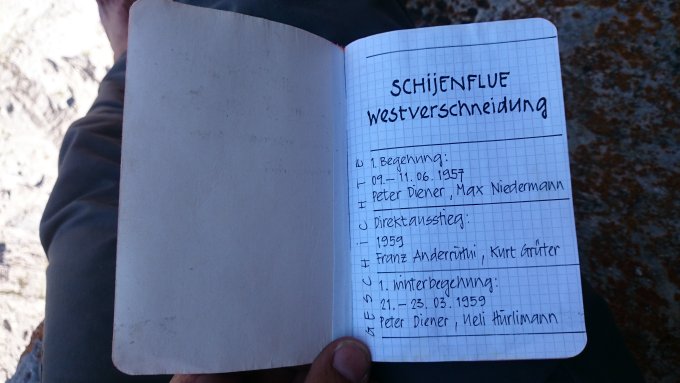 SCHIJENFLUE
Westverschneidung
GESCHICHTE
1. Begehung:
09.-11.06.1957
Peter Diener, Max Niedermann
Direktausstieg:
1959
Franz Anderrüthi, Kurt Grüter
1. Winterbegehung:
21.-23.03.1959
Peter Diener, Ueli Hürlimann